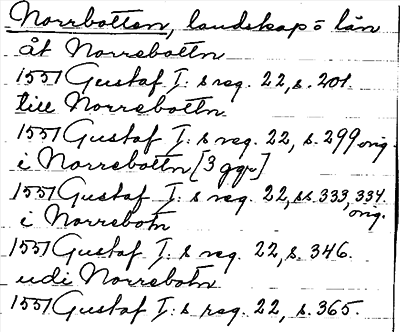 Norrbotten, landskap = län
åt Norrebottn
1551 Gustaf I:s reg. 22, s. 201.
till Norrebottn
1551 Gustaf I:s reg. 22, s. 299 orig.
i Norrebottn [3 ggr]
1551 Gustaf I:s reg. 22, ss. 333, 334 orig.
i Norrebotn
1551 Gustaf I:s reg. 22, s. 346.
udi Norrebotn
1551 Gustaf I:s reg. 22, s. 365.